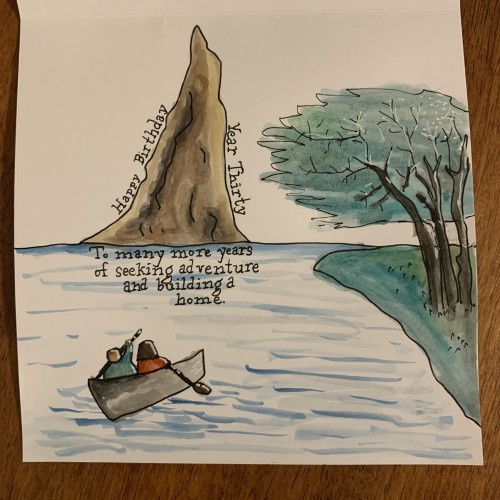 Happy Birthday
Year Thirty
To many more years
of seeking adventure
and building a
home.